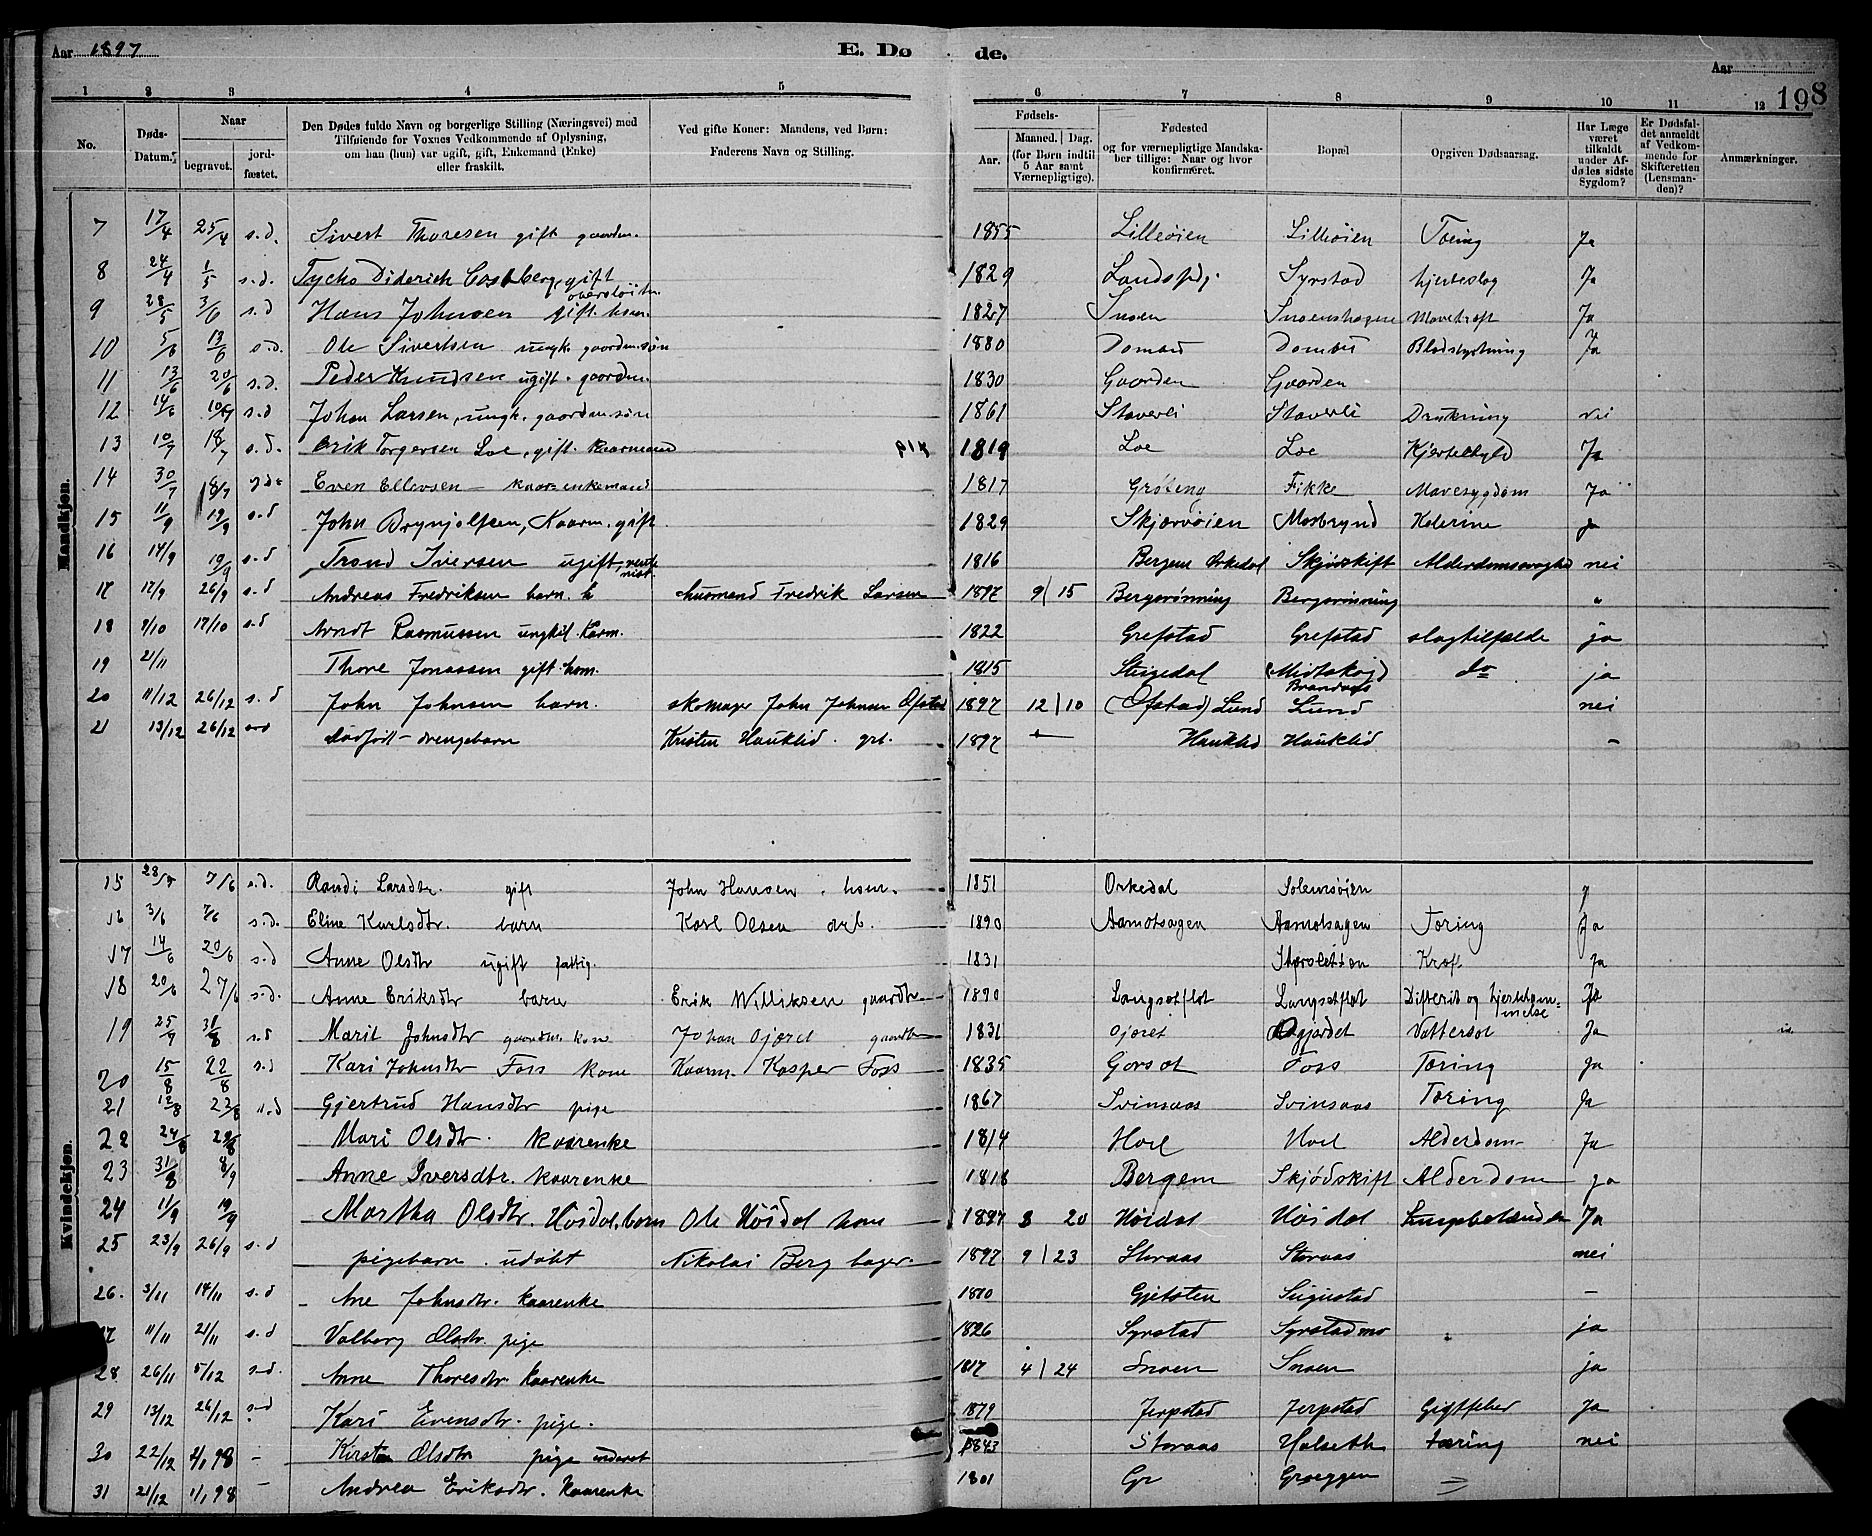 Aar 1897 E. Dø de. Aar
198
1 2 3 4 5 6 7 8 9 10 11 12
No. Døds-Datum. Naar begravet. jordfæstet. Den Dødes fulde Navn og borgerlige Stilling (Næringsvei) med Tilføiende for Voxnes Vedkommende af Oplysning, om han (hun) var ugift, gift, Enkemand (Enke) eller fraskilt. Ved gifte Koner: Mandens, ved Børn: Faderens Navn og Stilling. Fødsels- Aar. Maaned. Dag. (for Børn indtil 5 Aar samt Værnepligtige). Fødested og for værnepligtige Mandskaber tillige: Naar og hvor konfirmeret. Bopæl Opgiven Dødsaarsag. Har Læge været tilkaldt under Afdødes sidste Sygdom? Er Dødsfaldet anmeldt af Vedkommende for Skifteretten (Lensmanden)? Anmærkninger.
Mandkjøn.
7 17/4 25/4 s.d. Sivert Thoresen gift gaardm. 1855 Lilleøien Lilleøien Tæring Ja
8 24/4 1/5 s.d. Tycho Diderich gift 1829 Syrstad hjerteslag Ja
9 28/5 3/6 s.d Hans Johnsen gift. husm. 1827 Snoen Snoenshagen Mavekræft Ja
10 5/6 13/6 s.d. Ole Sivertsen ungk. gaardm.søn 1880 Dombu Dombu Blodstyrtning Ja
11 13/6 20/6 s.d. Peder Knudsen ugift. gaardm. 1830 Gaarden Gaarden
12 14/6 s.d Johan Larsen, ungk. gaardm.søn 1861 Staverli Staverli Drukning nei
13 10/7 18/7 s.d. Erik Torgersen Loe, gift. Kaarmand 1819 Loe Loe Ja
14 30/7 18/7 Even Ellevsen kaar=enkemand 1817 Grøteng Fikke Mavesygdom Ja
15 11/9 19/9 s.d John Brynjolfsen, Kaarm. gift 1829 Skjærvøien Mosbrynd Kolerine
16 14/9 19/9 s.d Trond Iversen ugift 1816 Bergem Orkedal Skjødskift nei
17 17/9 26/9 s.d Andreas Fredriksen barn husmand Fredrik Larsen 1897 9 | 15 Bergsrønning Bergsrønning "
18 9/10 17/10 s.d Arndt Rasmussen ungkl. Karm. 1822 Grefstad Grefstad slagtilfælde ja
19 2/11 Thore Jonassen gift husm. 1815 Stigedal (Midtskoj) Brandaas do ja
20 11/12 26/12 s.d John Johnsen barn. skomager John Johnsen Ofstad 1897 12 | 10 (Ofstad) Lund Lund nei
21 13/12 26/12 dødfødt drengebarn Kristen Hauklid. grb. 1897 Hauklid Hauklid -
Kvindekjøn.
15 28/5 7/6 s.d. Randi Larsdtr. gift John Hansen. husm. 1851 Orkedal Solemsøien
16 3/6 7/6 s.d. Eline Karlsdtr. barn Karl Olsen arb. 1890 Aamotsagen Aamotsagen Tæring Ja
17 14/6 20/6 s.d Anne Olsdtr ugift fattig 1831 Størsletten Kræft Ja
18 20/6 27/6 s.d. Anne Eriksdtr barn Erik Williksen gaardbr 1890 Langsetflat Langsetflat Difterit og Ja
19 25/7 31/8 s.d Marit Johnsdtr gaardm. kone Johan Ojæret gaardbr 1831 Ojæret Vattersot Ja
20 15/8 22/8 s.d Kari Johnsdtr Foss kone Kaarm. Kasper Foss 1835 Gorset Foss Tæring Ja
21 12/8 22/8 s.d Gjertrud Hansdtr pige 1867 Svinsaas Svinsaas Tæring Ja
22 24/8 29/8 Mari Olsdtr. kaarenke 1814 Hoel Hoel Alderdom Ja
23 31/8 8/9 Anne Iversdtr. kaarenke 1818 Bergem Skjødskift Alderdom ja
24 11/9 19/9 Martha Olsdtr. Høidal barn Ole Høidal husm 1897 8 20 Høidal Høidal Lungebetændelse Ja
25 23/9 26/9 s.d pigebarn. udøbt Nikolai Berg bager 1897 9 | 23 Storaas Storaas nei
26. 3/11 14/11 s.d Ane Johnsdtr. kaarenke 1810 Gjetsten -
27 11/11 21/11 s.d Valborg Olsdtr. pige 1826 Syrstad Syrstadmo " ja
28 26/11 5/12 s.d. Anne Thoresdtr kaarenke 1817 4 | 24 Snoen Snoen ja
29 13/12 26/12 s.d Kari Evensdtr. pige. 1879 Jerpstad Jerpstad Gigtfeber Ja
30 22/12 2/1 98 - Kirsten Olsdtr pige 1843 Storaas Halseth tæring nei
31 21/12 1/1 98 - Andrea Eriksdtr. Kaarenke 1801 Gr Græggen